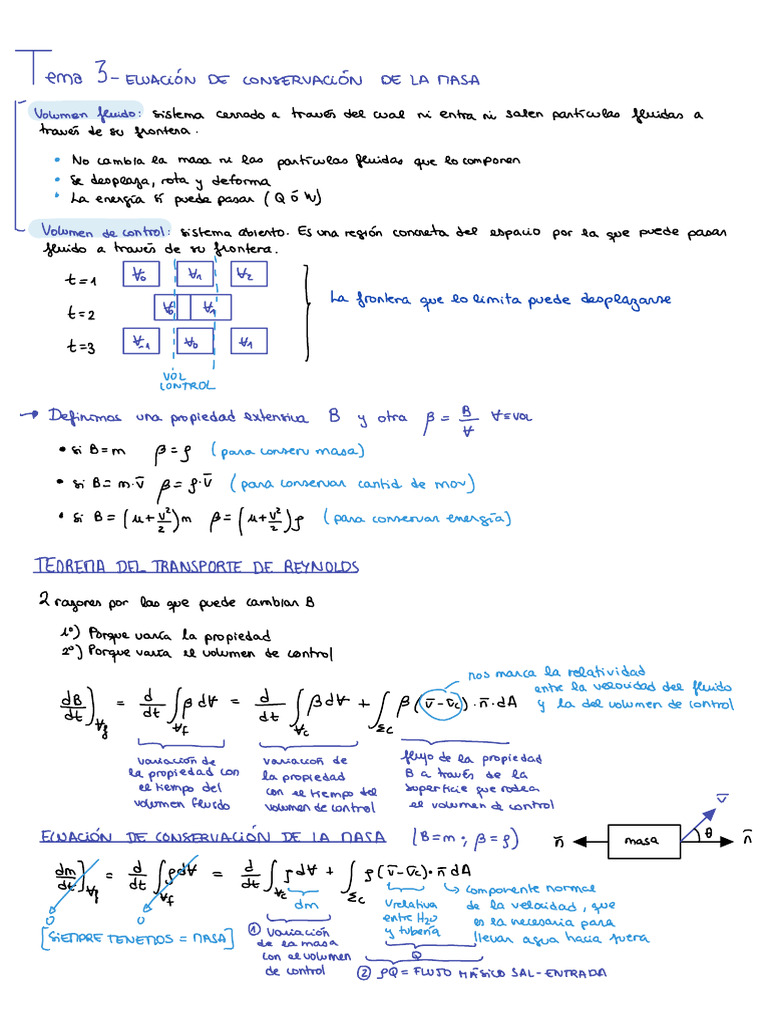 Tema 3 - ECUACIÓN DE CONSERVACIÓN DE LA MASA
Volumen fluido: sistema cerrado a través del cual ni entra ni salen partículas fluidas a
través de su frontera.
• No cambia la masa ni las partículas fluidas que lo componen
• Se desplaza, rota y deforma
• La energía sí puede pasar (Q ó W)
Volumen de control: sistema abierto. Es una región concreta del espacio por la que puede pasar
fluido a través de su frontera.
t=1 V̶₀ V̶₁ V̶₂
t=2 V̶₀ V̶₁
t=3 V̶₋₁ V̶₀ V̶₁
La frontera que lo limita puede desplazarse
VOL
CONTROL
→ Definimos una propiedad extensiva B y otra β = B/V̶ V̶≡vol
• si B=m β=ρ (para conserv masa)
• si B=m·v̄ β=ρ·v̄ (para conservar cantid de mov)
• si B=(μ+v²/2)m β=(μ+v²/2)ρ (para conservar energía)
TEOREMA DEL TRANSPORTE DE REYNOLDS
2 razones por las que puede cambiar B
1º) Porque varía la propiedad
2º) Porque varía el volumen de control
nos marca la relatividad
entre la velocidad del fluido
y la del volumen de control
dB/dt]V̶f = d/dt ∫V̶f β dV̶ = d/dt ∫V̶c β dV̶ + ∫Σc β(v̄-v̄c)·n̄·dA
variación de
la propiedad con
el tiempo del
volumen fluido
variación de
la propiedad
con el tiempo del
volumen de control
flujo de la propiedad
B a través de la
superficie que rodea
el volumen de control
ECUACIÓN DE CONSERVACIÓN DE LA MASA (B=m; β=ρ)
n̄ masa θ v̄ n̄
dm/dt]V̶f = d/dt ∫V̶f ρ dV̶ = d/dt ∫V̶c ρ dV̶ + ∫Σc ρ(v̄-v̄c)·n̄ dA
0 0
[SIEMPRE TENEMOS = MASA]
dm
① Variación
de la masa
con el volumen
de control
Vrelativa
entre H2O
y tubería
Componente normal
de la velocidad, que
es la necesaria para
llevar agua hacia fuera
Q
② ρQ = FLUJO MÁSICO SAL-ENTRADA